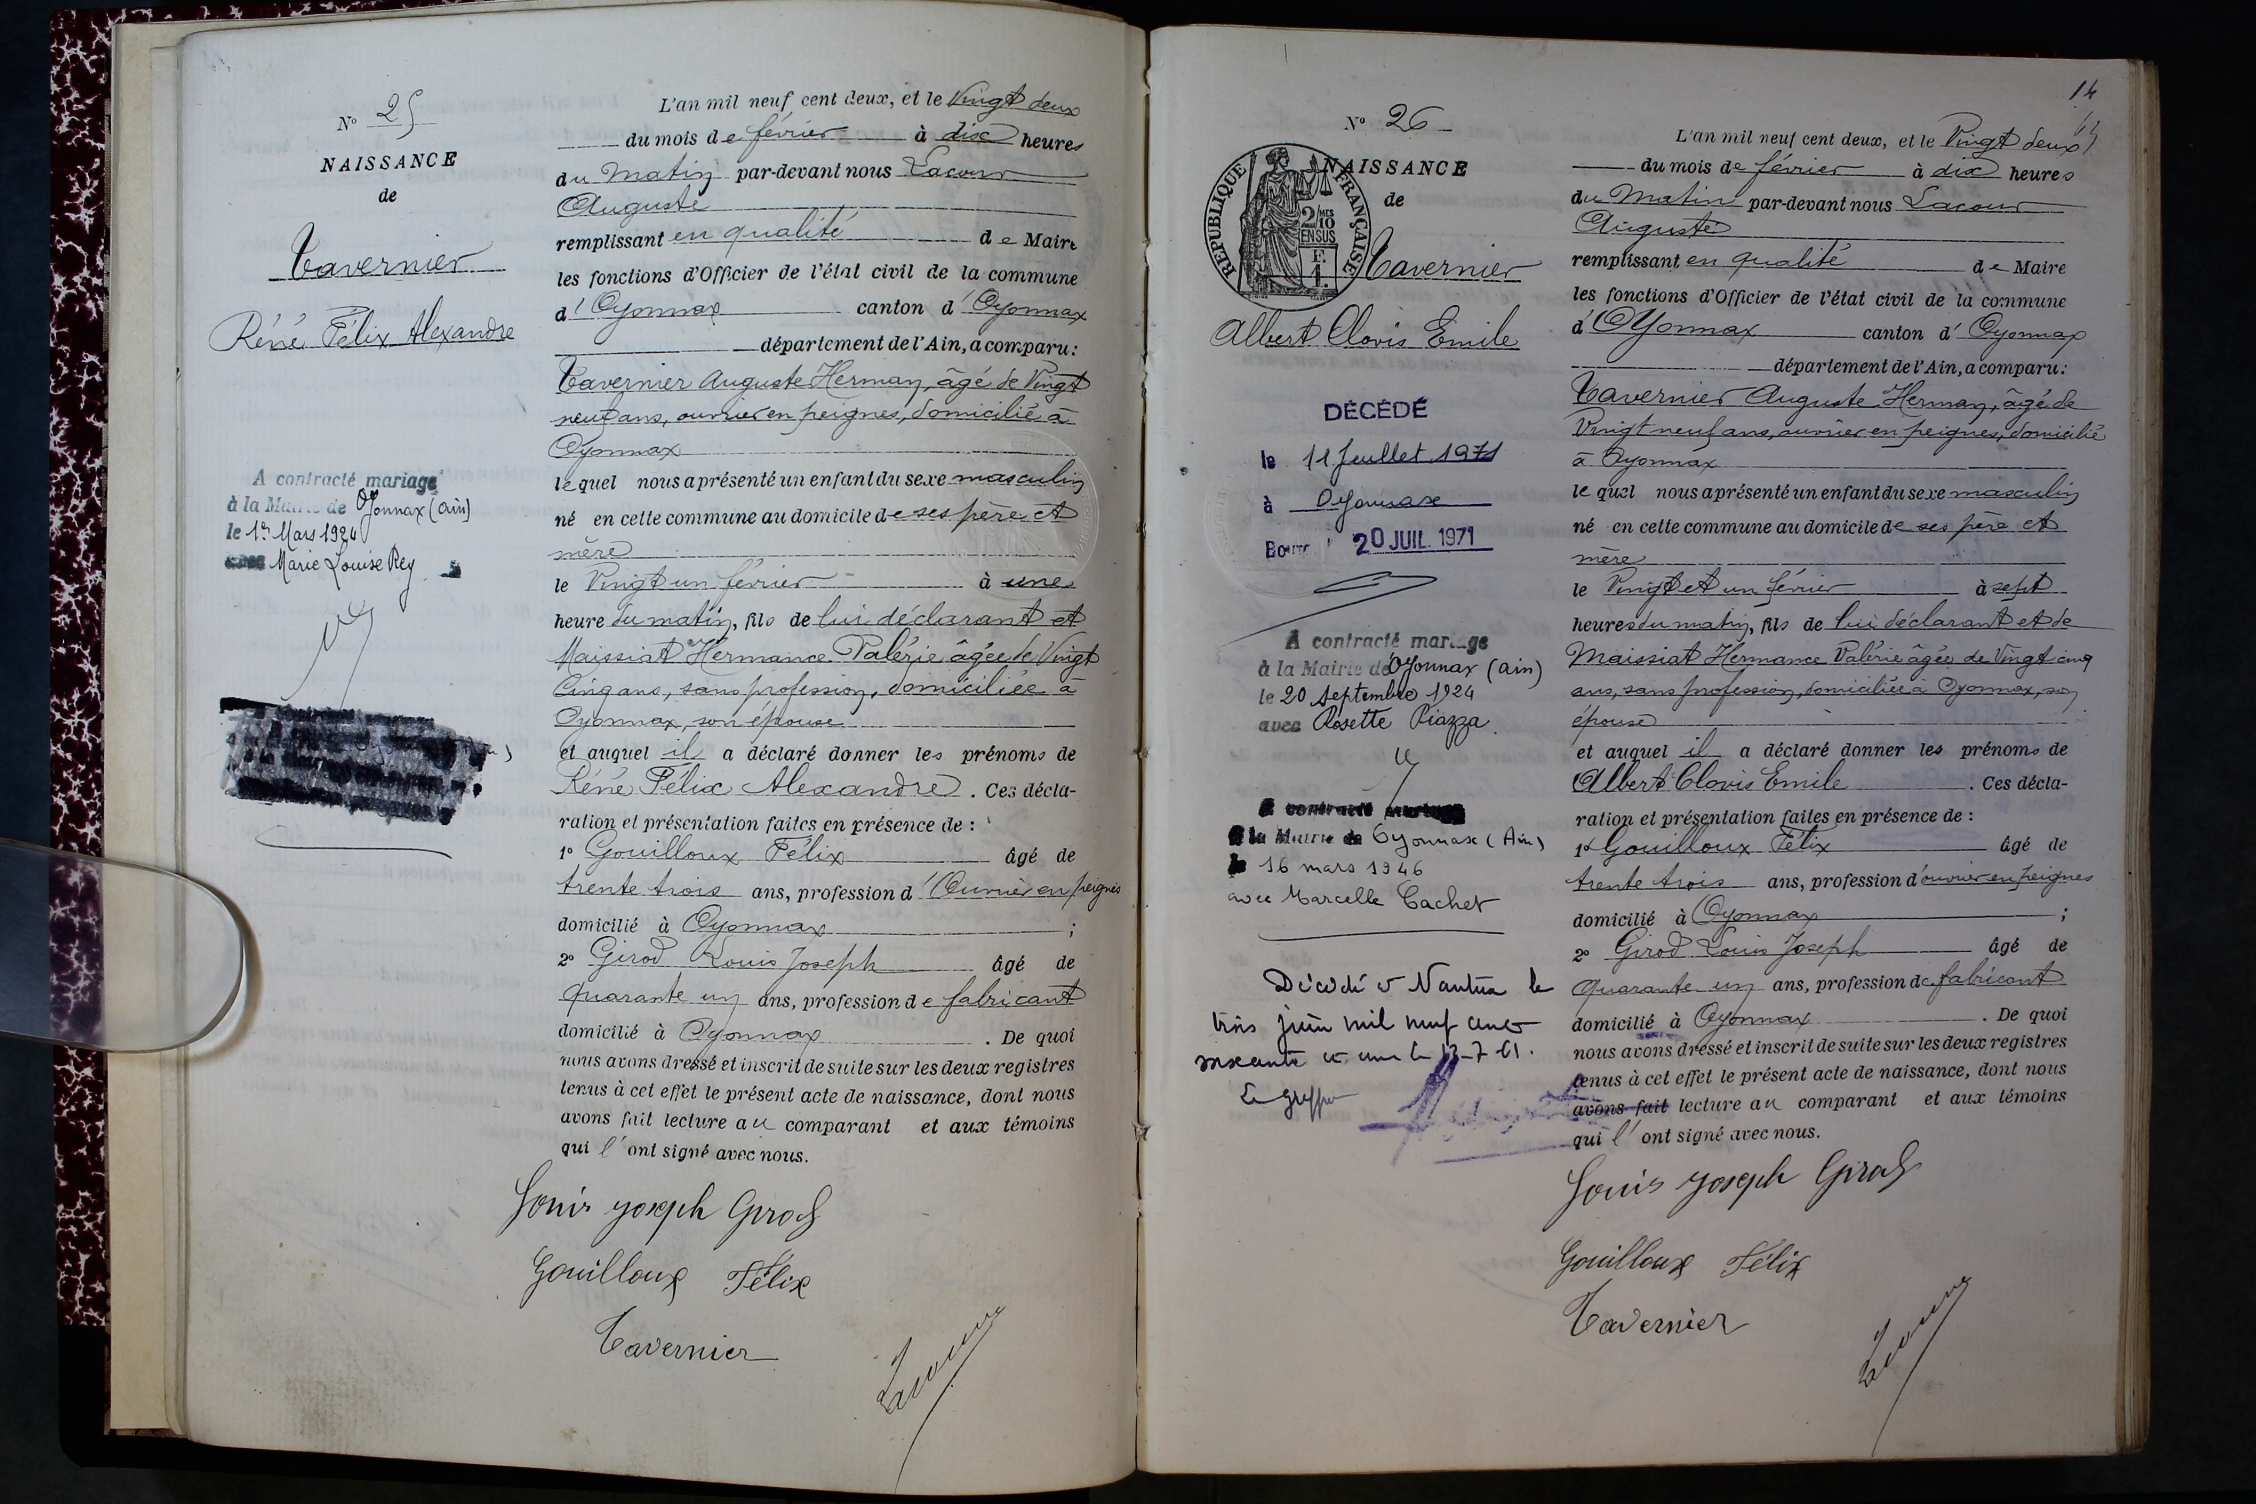 Nº 25
NAISSANCE
de
Tavernier
Réné Félix Alexandre
A contracté mariage
à la Mairie de Oyonnax (Ain)
le 1er Mars 1924
avec Marie Louise Rey
L'an mil neuf cent deux, et le Vingt deux
du mois de février à dix heures
du Matin par-devant nous Lacour
Auguste
remplissant en qualité de Maire
les fonctions d'Officier de l'état civil de la commune
d'Oyonnax canton d'Oyonnax
département de l'Ain, a comparu:
Tavernier Auguste Herman, âgé de Vingt
neuf ans, ouvrier en peignes, domicilié à
Oyonnax
lequel nous a présenté un enfant du sexe masculin
né en cette commune au domicile de ses père et
mère
le Vingt un février à une
heure du matin, fils de lui déclarant et
Maissiat Hermance Valérie âgée de Vingt
Cinq ans, sans profession, domiciliée à
Oyonnax, son épouse
et auquel il a déclaré donner les prénoms de
Réné Félix Alexandre. Ces décla-
ration et présentation faites en présence de :
1º Gouilloux Félix âgé de
trente trois ans, profession d'Ouvrier en peignes
domicilié à Oyonnax ;
2º Girod Louis Joseph âgé de
quarante un ans, profession de fabricant
domicilié à Oyonnax . De quoi
nous avons dressé et inscrit de suite sur les deux registres
tenus à cet effet le présent acte de naissance, dont nous
avons fait lecture au comparant et aux témoins
qui l'ont signé avec nous.
Louis Joseph Girod
Gouilloux Félix
Tavernier
Lacour
14
Nº 26
NAISSANCE
de
REPUBLIQUE FRANÇAISE
2/MES
10
EN SUS
F.
1.
Tavernier
Albert Clovis Emile
DÉCÉDÉ
le 11 Juillet 1971
à Oyonnax
Bourg 20 JUIL. 1971
A contracté mariage
à la Mairie de Oyonnax (Ain)
le 20 Septembre 1924
avec Rosette Piazza
A contracté mariage
à la Mairie de Oyonnax (Ain)
le 16 mars 1946
avec Marcelle Cachet
Décédé à Nantua le
trois juin mil neuf cent
soixante et un le 13-7-61.
Le greffier
L'an mil neuf cent deux, et le Vingt deux
du mois de février à dix heures
du Matin par-devant nous Lacour
Auguste
remplissant en qualité de Maire
les fonctions d'Officier de l'état civil de la commune
d'Oyonnax canton d'Oyonnax
département de l'Ain, a comparu:
Tavernier Auguste Herman, âgé de
Vingt neuf ans, ouvrier en peignes, domicilié
à Oyonnax
lequel nous a présenté un enfant du sexe masculin
né en cette commune au domicile de ses père et
mère
le Vingt et un février à sept
heures du matin, fils de lui déclarant et de
Maissiat Hermance Valérie âgée de Vingt cinq
ans, sans profession, domiciliée à Oyonnax, son
épouse
et auquel il a déclaré donner les prénoms de
Albert Clovis Emile . Ces décla-
ration et présentation faites en présence de :
1º Gouilloux Félix âgé de
trente trois ans, profession d'ouvrier en peignes
domicilié à Oyonnax ;
2º Girod Louis Joseph âgé de
quarante un ans, profession de fabricant
domicilié à Oyonnax . De quoi
nous avons dressé et inscrit de suite sur les deux registres
tenus à cet effet le présent acte de naissance, dont nous
avons fait lecture au comparant et aux témoins
qui l'ont signé avec nous.
Louis Joseph Girod
Gouilloux Félix
Tavernier
Lacour